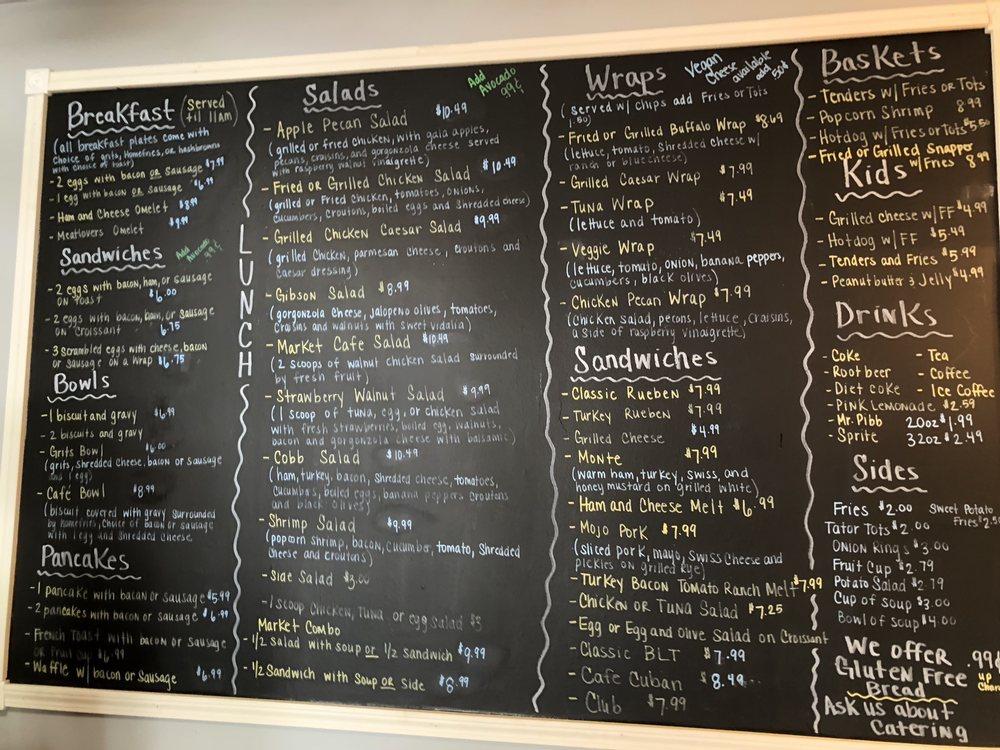 Breakfast (Served til 11am)
(all breakfast plates come with
choice of grits, Homefries, or hashbrowns
with choice of toast)
- 2 eggs with bacon OR Sausage $7.99
- 1 egg with bacon OR Sausage $6.99
- Ham and Cheese Omelet $8.99
- Meatlovers Omelet $9.99
Sandwiches
Add Avocado 99¢
- 2 eggs with bacon, ham, or sausage
on Toast $6.00
- 2 eggs with bacon, ham, or Sausage
on Croissant 6.75
- 3 Scrambled eggs with cheese, bacon
or sausage on a wrap $6.75
Bowls
- 1 biscuit and gravy $6.99
- 2 biscuits and gravy
- Grits Bowl $6.00
(grits, shredded Cheese, bacon or Sausage
and 1 egg)
- Café Bowl $8.99
(biscuit covered with gravy surrounded
by homefries, choice of bacon or sausage
with 1 egg and Shredded Cheese
Pancakes
- 1 pancake with bacon or sausage $5.99
- 2 pancakes with bacon or sausage $6.99
- French Toast with bacon or Sausage
or Fruit cup $6.99
- Waffle w/ bacon or Sausage $6.99
LUNCH
Salads
Add Avocado 99¢
- Apple Pecan Salad $10.49
(grilled or fried chicken, with gala apples,
pecans, craisins, and gorgonzola cheese served
with raspberry walnut vinaigrette)
- Fried or Grilled Chicken Salad $10.49
(grilled or Fried chicken, tomatoes, onions,
cucumbers, croutons, boiled eggs and Shredded cheese)
- Grilled Chicken Caesar Salad $9.99
(grilled Chicken, parmesan cheese, croutons and
Caesar dressing)
- Gibson Salad $8.99
(gorgonzola cheese, jalapeno olives, tomatoes,
Craisins and walnuts with sweet vidalia)
- Market Cafe Salad $10.49
(2 scoops of walnut chicken salad surrounded
by fresh fruit)
- Strawberry Walnut Salad $9.99
(1 scoop of tuna, egg, or chicken salad
with fresh strawberries, boiled egg, walnuts,
bacon and gorgonzola cheese with balsamic)
- Cobb Salad $10.49
(ham, turkey, bacon, Shredded cheese, tomatoes,
Cucumbers, boiled eggs, banana peppers croutons
and black olives)
- Shrimp Salad $9.99
(popcorn shrimp, bacon, cucumber, tomato, Shredded
Cheese and croutons)
- Side Salad $3.00
- 1 scoop Chicken, Tuna or egg Salad $3
Market Combo
- 1/2 Salad with soup or 1/2 Sandwich $9.99
- 1/2 Sandwich with Soup or side $8.99
Wraps
Vegan Cheese available add 50¢
(served w/ chips add Fries or Tots
1.50)
- Fried or Grilled Buffalo Wrap $8.49
(lettuce, tomato, Shredded Cheese w/
ranch or bluecheese)
- Grilled Caesar Wrap $7.99
- Tuna Wrap $7.49
(lettuce and tomato)
- Veggie Wrap $7.49
(lettuce, tomato, onion, banana peppers,
cucumbers, black olives)
- Chicken Pecan Wrap $7.99
(Chicken salad, pecans, lettuce, craisins,
a side of raspberry vinaigrette)
Sandwiches
- Classic Rueben $7.99
- Turkey Rueben $7.99
- Grilled Cheese $4.99
- Monte $7.99
(warm ham, turkey, swiss, and
honey mustard on grilled white)
- Ham and Cheese Melt $6.99
- Mojo Pork $7.99
(sliced pork, mayo, Swiss cheese and
pickles on grilled Rye)
- Turkey Bacon Tomato Ranch Melt $7.99
- Chicken or Tuna Salad $7.25
- Egg or Egg and Olive Salad on Croissant
- Classic BLT $7.99
- Cafe Cuban $8.49
- Club $7.99
Baskets
- Tenders w/ Fries or Tots
- Popcorn Shrimp 8.99
- Hotdog w/ Fries or Tots $5.50
- Fried or Grilled Snapper
w/ Fries 8.99
Kids
- Grilled cheese w/ FF $4.99
- Hotdog w/ FF $5.49
- Tenders and Fries $5.99
- Peanut butter & Jelly $4.99
Drinks
- Coke - Tea
- Root beer - Coffee
- Diet coke - Ice Coffee
- Pink Lemonade $2.59
- Mr. Pibb 20oz $1.99
- Sprite 32oz $2.49
Sides
Fries $2.00 Sweet Potato
Fries
Tator Tots $2.00
Onion Rings $3.00
Fruit Cup $2.79
Potato Salad $2.79
Cup of soup $3.00
Bowl of soup $4.00
We offer .99¢
Gluten Free up
Bread
Ask us about
Catering